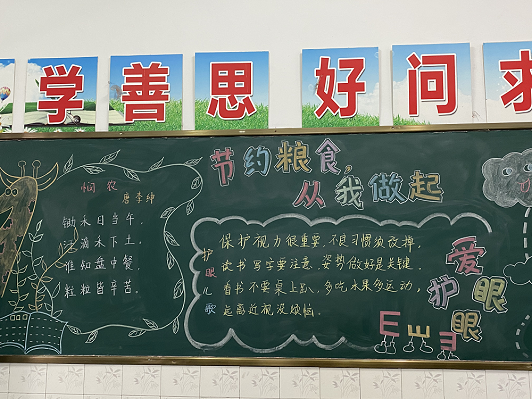 学善思 好问求
悯农
唐李绅
锄禾日当午,
汗滴禾下土,
谁知盘中餐,
粒粒皆辛苦。
节约粮食,
从我做起
护眼儿歌
保护视力很重要,不良习惯须改掉,
读书写字要注意,姿势做好是关键,
看书不要桌上趴,多吃水果多运动,
远离近视没烦恼。
爱
护眼
E Ш Ǝ